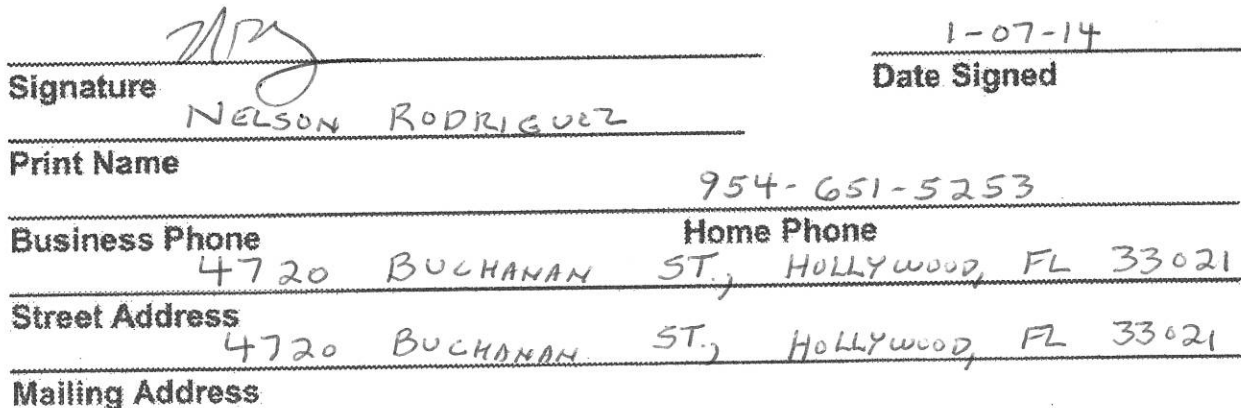 1-07-14
Signature Date Signed
NELSON RODRIGUEZ
Print Name
954-651-5253
Business Phone Home Phone
4720 BUCHANAN ST., HOLLYWOOD, FL 33021
Street Address
4720 BUCHANAN ST., HOLLYWOOD, FL 33021
Mailing Address